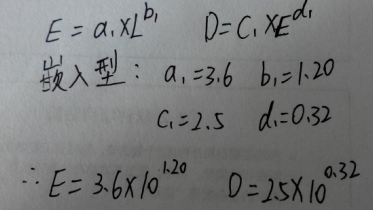 E = a₁×L^b₁ D=C₁×E^d₁
嵌入型： a₁=3.6 b₁=1.20
C₁=2.5 d₁=0.32
∴ E=3.6×10^1.20 D=2.5×10^0.32